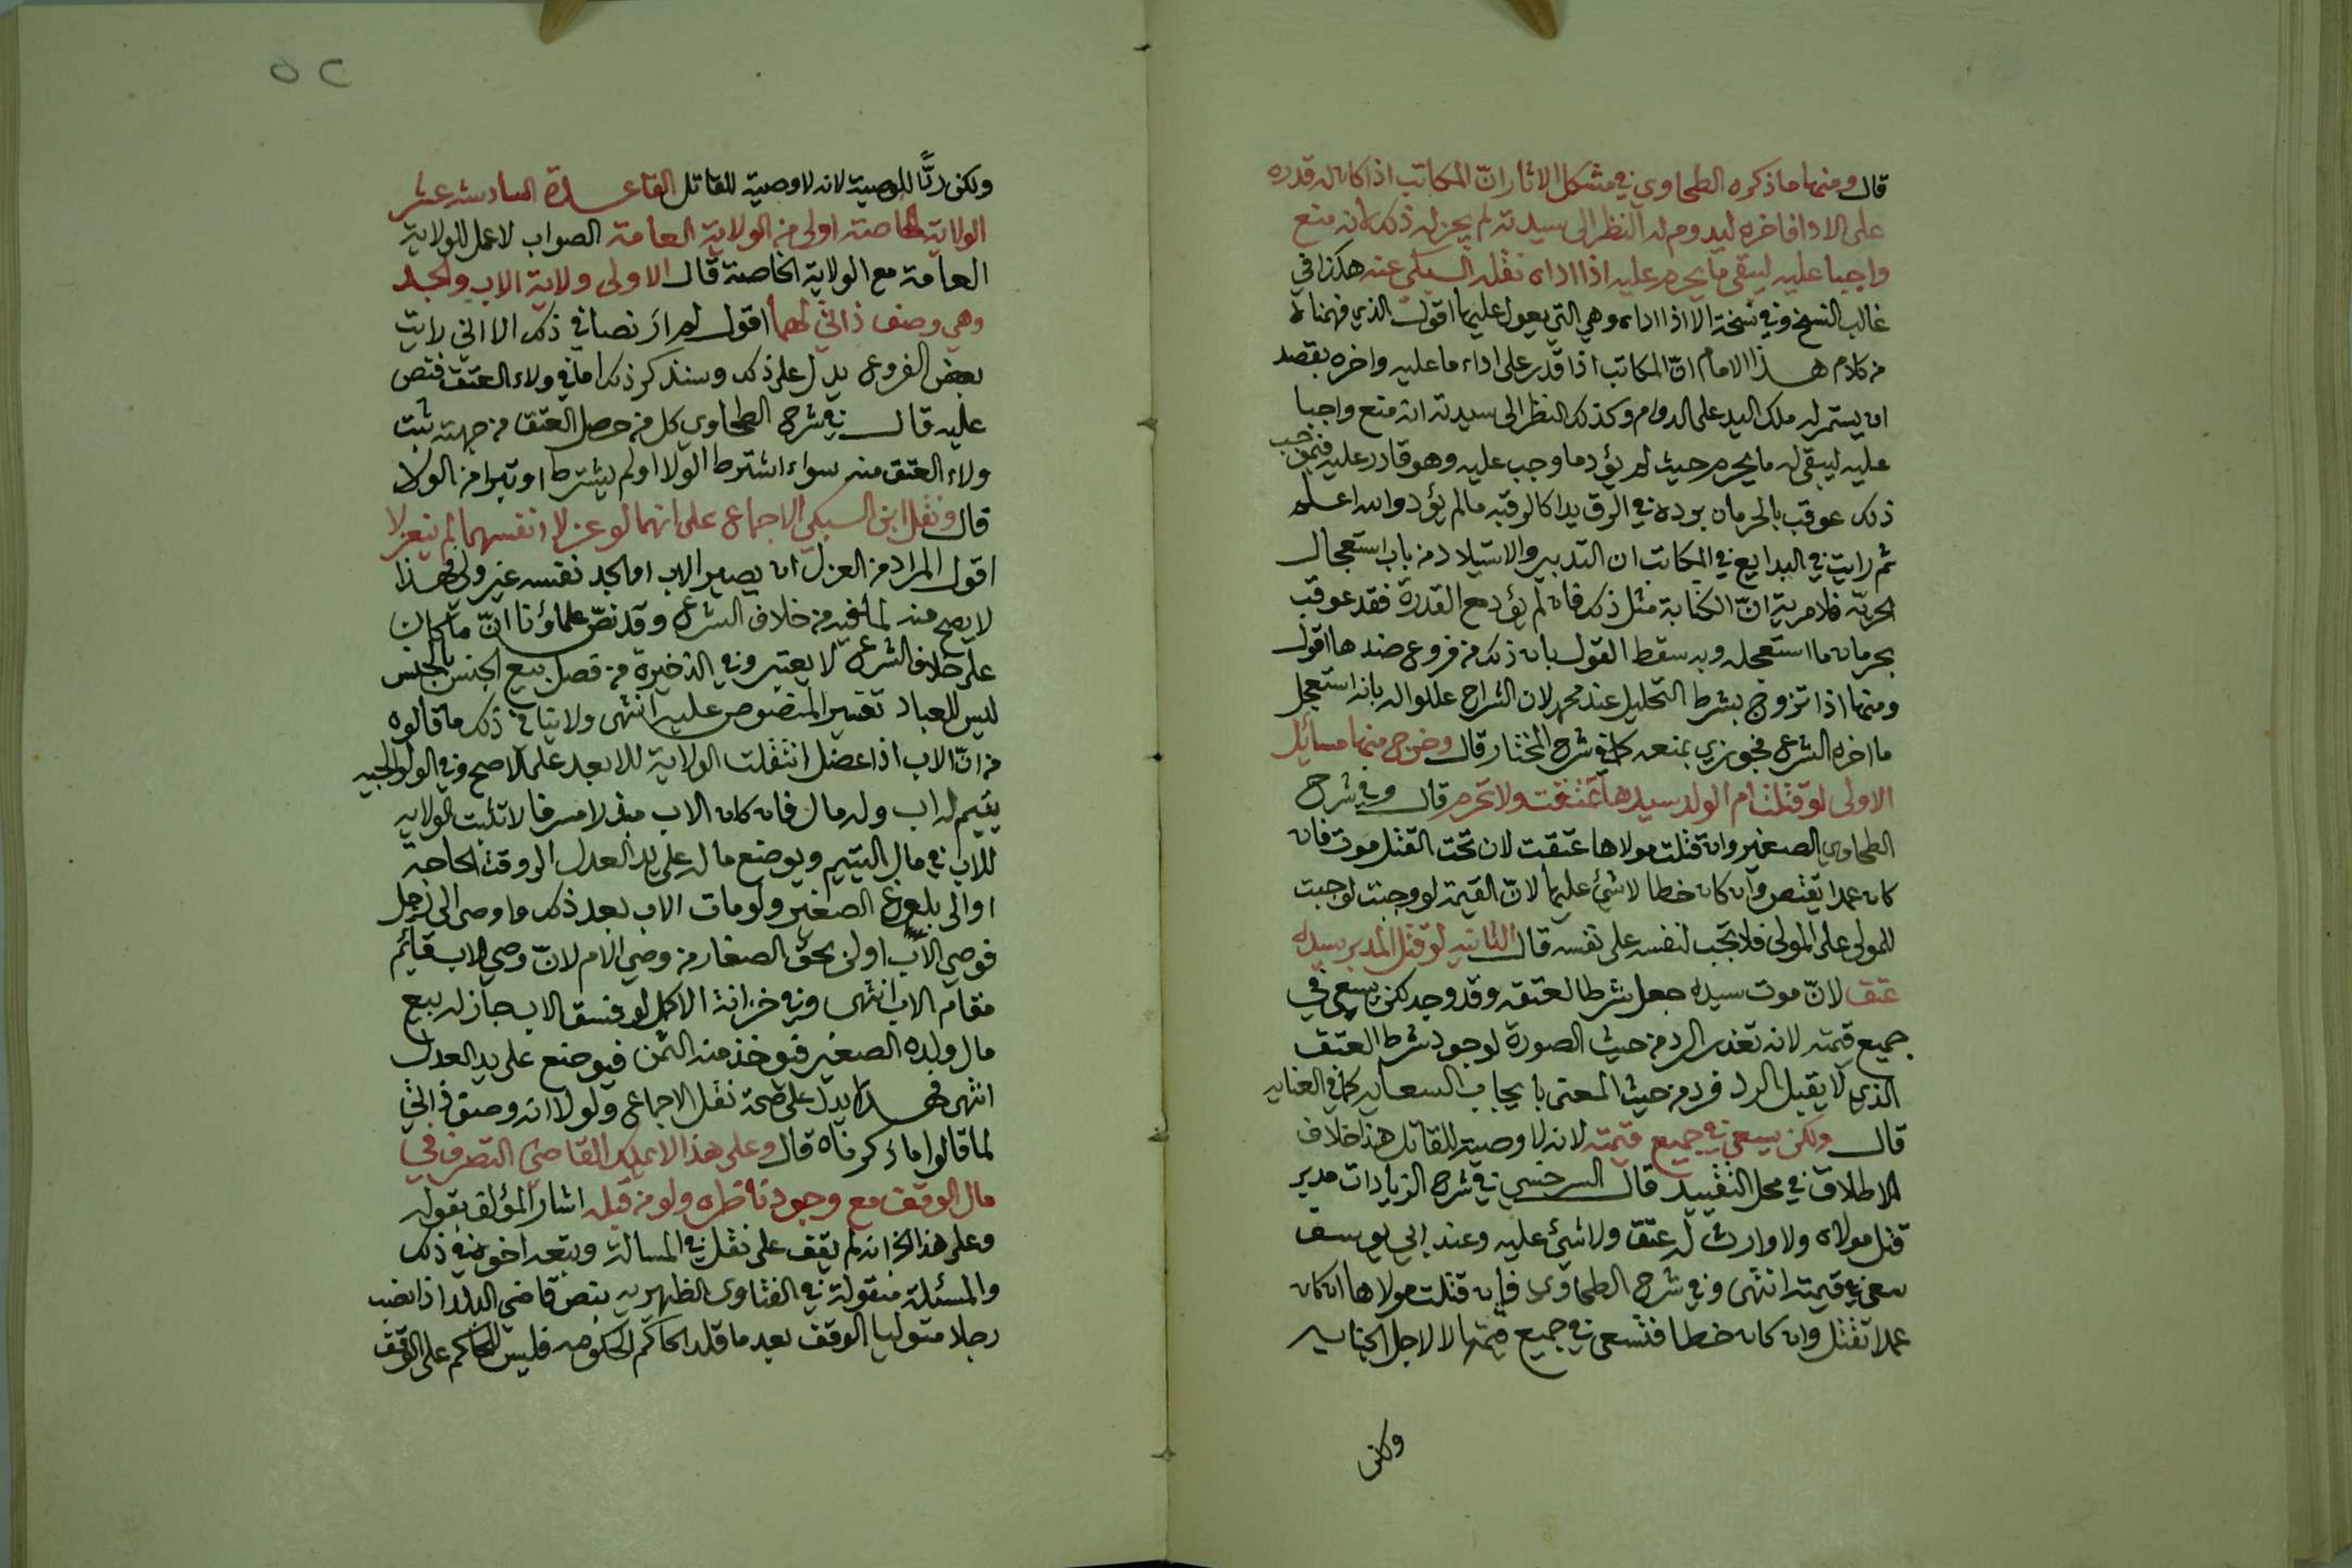 قال ومنها ما ذكره الطحاوي في مشكل الاثار انّ المكاتب اذا كان له قدره
على الادا فاخره ليدوم له النظر الى سيدته لم يجز له ذلك لانه منع
واجبا عليه ليبقى ما يحرم عليه اذا اداه نقله السبكي عنه هكذا في
غالب النسخ وفي نسخة الا اذا اداه وهي التي يعول عليها اقول الذي فهمناه
من كلام هذا الامام انّ المكاتب اذا قدر على اداء ما عليه واخره بقصد
ان يستمر له ملك اليد على الدوام وكذلك النظر الى سيدته انه منع واجبا
عليه ليبقى له ما يحرم حيث لم يؤد ما وجب عليه وهو قادر عليه فبموجب
ذلك عوقب بالحرمان برده في الرق يدا كالرقبه ما لم يؤد والله اعلم
ثم رايت في البدايع في المكاتب ان التدبير والاستيلاد من باب استعجال
الحريّة فلا مرية انّ الكتابة مثل ذلك فان لم يؤد مع القدرة فقد عوقب
بحرمان ما استعجله وبه سقط القول بان ذلك من فروع ضدها اقول
ومنها اذا تزوج بشرط التحليل عند محمد لان الشراح عللوا له بانه استعجل
ما اخره الشرع فجوزي بمنعه كما في شرح المختار قال وخرج منها مسائل
الاولى لو قتلت ام الولد سيدها عتقت ولا تحرم قال وفي شرح
الطحاوي الصغير وان قتلت مولاها عتقت لان تحت القتل موت فان
كان عمدا يقتص وان كان خطا لا شئ عليها لانّ القيمة لو وجبت لوجبت
للمولى على المولى فلا تجب لنفسه على نفسه قال الثانيه لو قتل المدبر سيده
عتق لانّ موت سيده جعل شرطا لعتقه وقد وجد لكن يسعى في
جميع قيمته لانه تعذر الرد من حيث الصورة لوجود شرط العتق
الذي لا يقبل الرد فرد من حيث المعنى بايجاب السعايه كما في العنايه
قال ولكن يسعى في جميع قيمته لانه لا وصية للقاتل هذا خلاف
الاطلاق في محل التقييد قال السرخسي في شرح الزيادات مدبر
قتل مولاه ولا وارث له عتق ولا شئ عليه وعند ابي يوسف
سعى في قيمته انتهى وفي شرح الطحاوي فان قتلت مولاها ان كان
عمدا تقتل وان كان خطا فتسعى في جميع قيمتها لا لاجل الجنايه
ولكن
٥٢
ولكن ردًّا للوصية لانه لا وصية للقاتل القاعدة السادسة عشر
الولاية الخاصة اولى من الولاية العامة الصواب لا عمل للولاية
العامة مع الولاية الخاصة قال الاولى ولاية الاب والجد
وهي وصف ذاتي لهما اقول لم ار نصا في ذلك الا اني رايت
بعض الفروع يدل على ذلك وسنذكر ذلك اما في ولاء العتق فنص
عليه قال في شرح الطحاوي كل من حصل العتق من جهته ثبت
ولاء العتق منه سواء اشترط الولا او لم يشترط او تبرا من الولا
قال ونقل ابن السبكي الاجماع على انهما لو عزلا انفسهما لم ينعزلا
اقول المراد من العزل ان يصير الاب او الجد نفسه غير ولي فهذا
لا يصح منه لما فيه من خلاف الشرع وقد نصّ علماؤنا انّ ما كان
على خلاف الشرع لا يعتبر وفي الذخيرة من فصل بيع الجنس بالجنس
ليس للعباد تغيير المنصوص عليه انتهى ولا ينافي ذلك ما قالوه
من انّ الاب اذا عضل انتقلت الولاية للابعد على الاصح وفي الولوالجيه
يتيم له اب وله مال فان كان الاب مبذرا مسرفا لا تثبت الولايه
للاب في مال اليتيم ويوضع ماله على يد العدل الى وقت الحاجة
او الى بلوغ الصغير ولو مات الاب بعد ذلك واوصى الى رجل
فوصي الاب اولى بحق الصغار من وصي الام لانّ وصي الاب قائم
مقام الاب انتهى وفي خزانة الاكمل لو فسق الاب جاز له بيع
مال ولده الصغير فيوخذ منه الثمن فيوضع على يد العدل
انتهى فهذا يدل على صحة نقل الاجماع ولولا انه وصف ذاتي
لما قالوا ما ذكرناه قال وعلى هذا لا يملك القاضي التصرف في
مال الوقف مع وجود ناظره ولو من قبله اشار المؤلف بقوله
وعلى هذا الخ انه لم يقف على نقل في المسالة وتبعه اخوه في ذلك
والمسئلة منقولة في الفتاوى الظهيريه بنص قاضي البلد اذا نصب
رجلا متوليا الوقف بعد ما قلد الحاكم الحكومه فليس للحاكم على الوقف